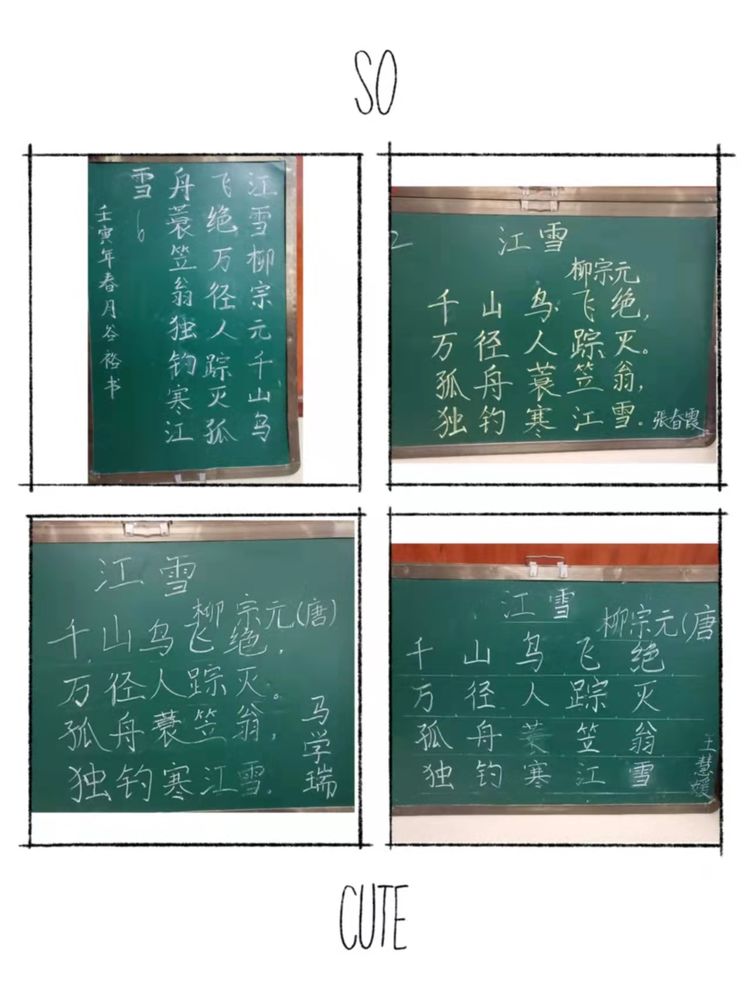 SO
江雪柳宗元千山鸟
飞绝万径人踪灭孤
舟蓑笠翁独钓寒江
雪 6
壬寅年春月谷裕书
2
江雪
柳宗元
千山鸟飞绝，
万径人踪灭。
孤舟蓑笠翁，
独钓寒江雪。
張春霞
江雪
柳宗元(唐)
千山鸟飞绝，
万径人踪灭。
孤舟蓑笠翁，
独钓寒江雪.
马学瑞
江雪
柳宗元(唐
千山鸟飞绝
万径人踪灭
孤舟蓑笠翁
独钓寒江雪
王慧媛
CUTE